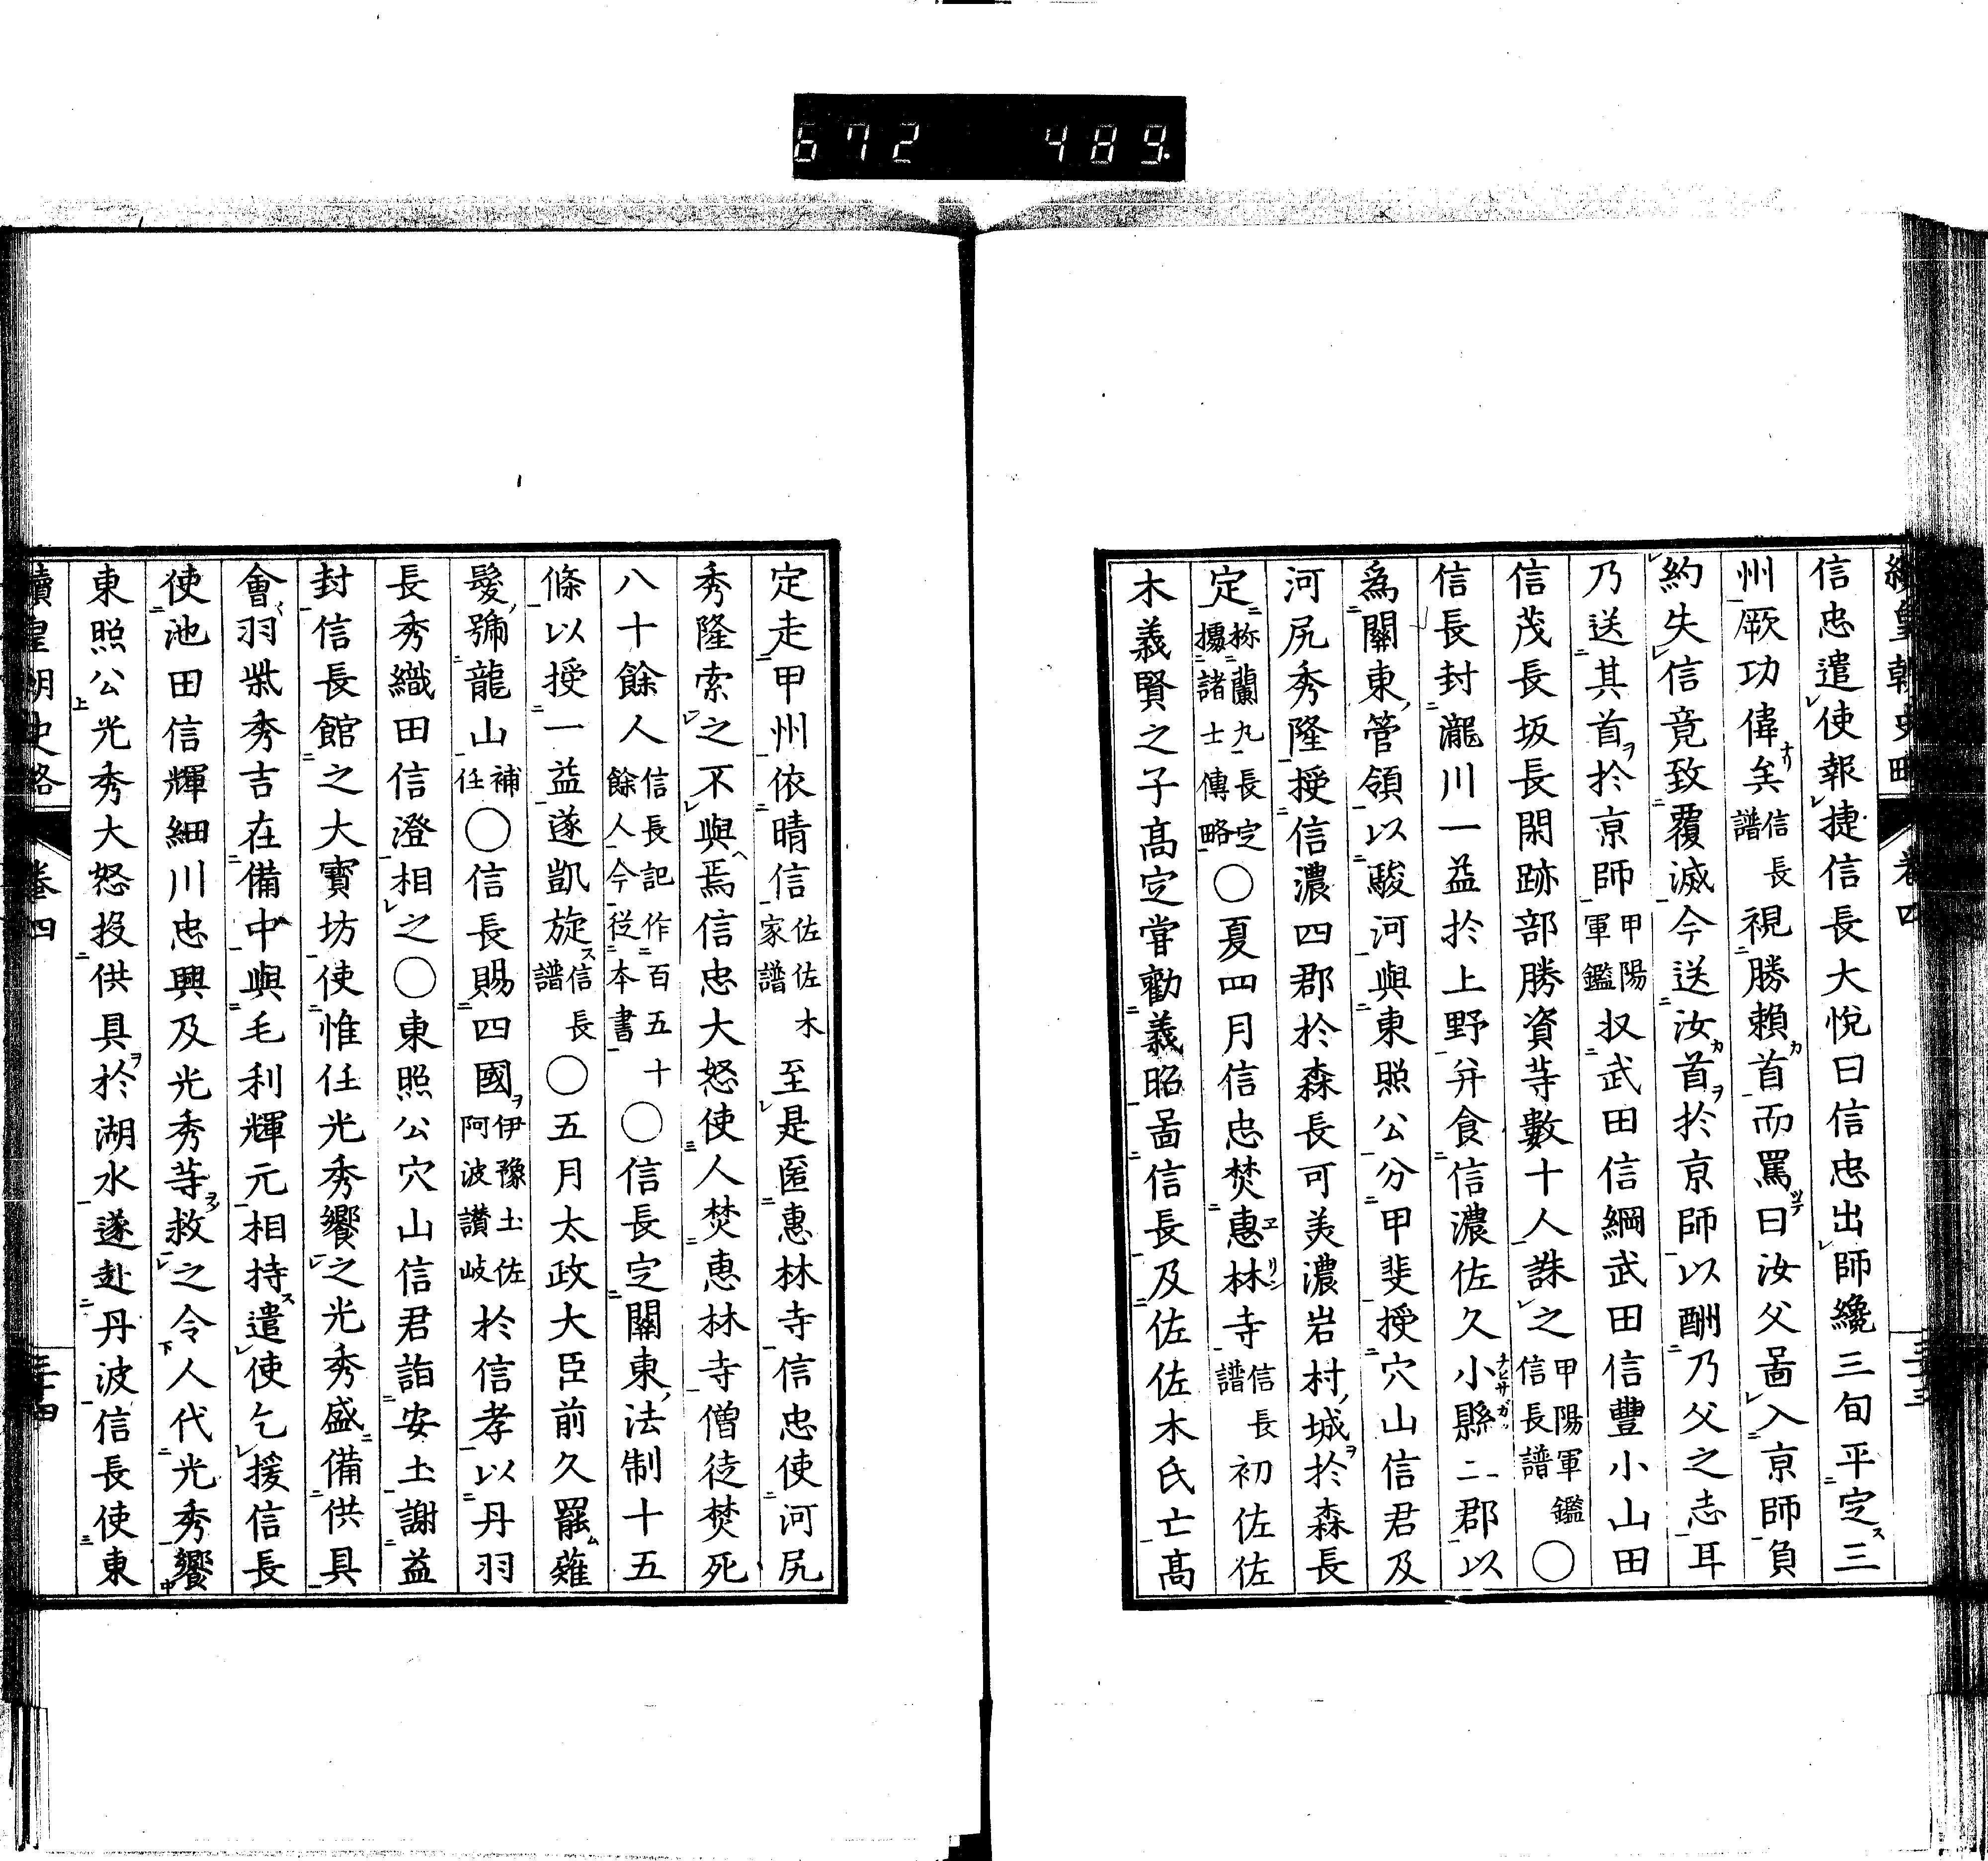 672 489.
續皇朝史略 卷四
信忠遣使報捷信長大悅曰信忠出師纔三旬平定三
州厥功偉矣信長譜視勝賴首而罵曰汝父啚入京師負
約失信竟致覆滅今送汝首於京師以酬乃父之志耳
乃送其首於京師甲陽軍鑑收武田信綱武田信豐小山田
信茂長坂長閑跡部勝資等數十人誅之甲陽軍鑑信長譜○
信長封瀧川一益於上野并食信濃佐久小縣二郡以
爲關東管領以駿河與東照公分甲斐授穴山信君及
河尻秀隆授信濃四郡於森長可美濃岩村城於森長
定稱蘭丸長定據諸士傳略○夏四月信忠焚惠林寺信長譜初佐佐
木義賢之子高定嘗勸義昭啚信長及佐佐木氏亡高
定走甲州依晴信佐佐木家譜至是匿惠林寺信忠使河尻
秀隆索之不與焉信忠大怒使人焚惠林寺僧徒焚死
八十餘人信長記作百五十餘人今從本書○信長定關東法制十五
條以授一益遂凱旋信長譜○五月太政大臣前久罷薙
髮號龍山補任○信長賜四國伊豫土佐阿波讚岐於信孝以丹羽
長秀織田信澄相之○東照公穴山信君詣安土謝益
封信長館之大寶坊使惟任光秀饗之光秀盛備供具
會羽柴秀吉在備中與毛利輝元相持遣使乞援信長
使池田信輝細川忠興及光秀等救之令人代光秀饗
東照公光秀大怒投供具於湖水遂赴丹波信長使東
續皇朝史略 卷四 三十四